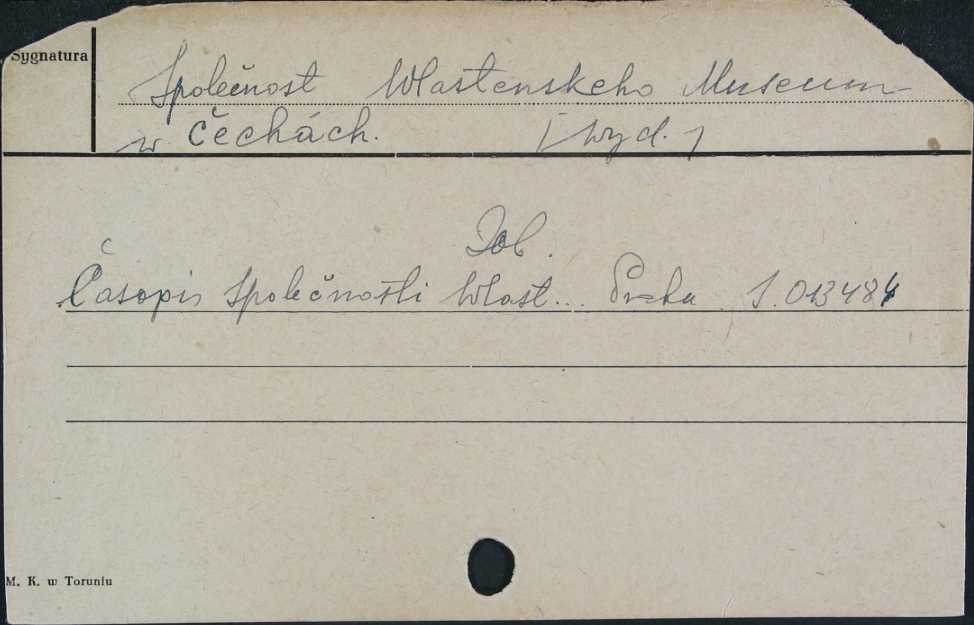 Sygnatura
Společnost Wlastenskeho Museum
w Čechách. [wyd.]
Dob.
Časopis Společnosti Wlast... Praha S.013484
M. K. w Toruniu